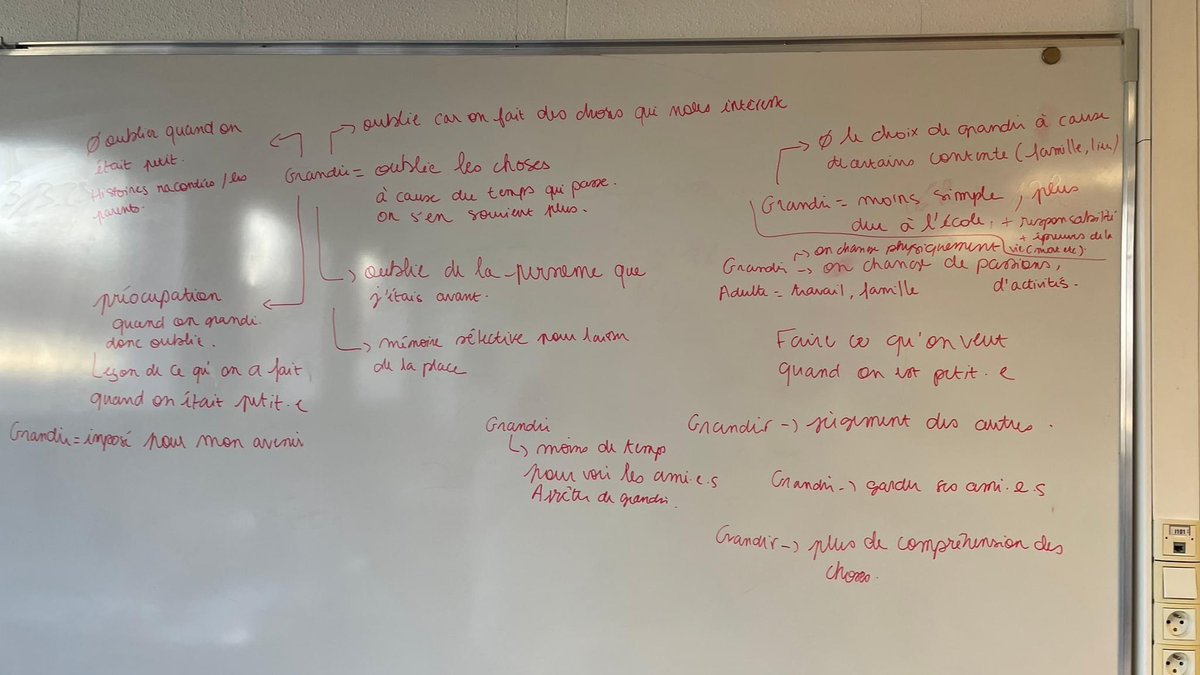 Ø oublier quand on
était petit.
Histoires racontées / les
parents.
oublie car on fait des choses qui nous intéresse
Grandir = oublie les choses
à cause du temps qui passe.
on s'en souvient plus.
oublie de la personne que
j'étais avant.
mémoire sélective pour laisser
de la place
préocupation
quand on grandi.
donc oublie.
Leçon de ce qu'on a fait
quand on était petit.e
Grandir = imposé pour mon avenir
Grandir
↳ moins de temps
pour voir les ami.e.s
Arrêter de grandir.
Ø le choix de grandir à cause
de certains contexte (famille, lieu)
Grandir = moins simple, plus
dur à l'école, + responsabilité
+ épreuves de la
vie (mort etc).
→ on change physiquement
Grandir → on change de passions,
d'activités.
Adulte = travail, famille
Faire ce qu'on veut
quand on est petit.e
Grandir → jugement des autres.
Grandir → garder ses ami.e.s
Grandir → plus de compréhension des
choses.